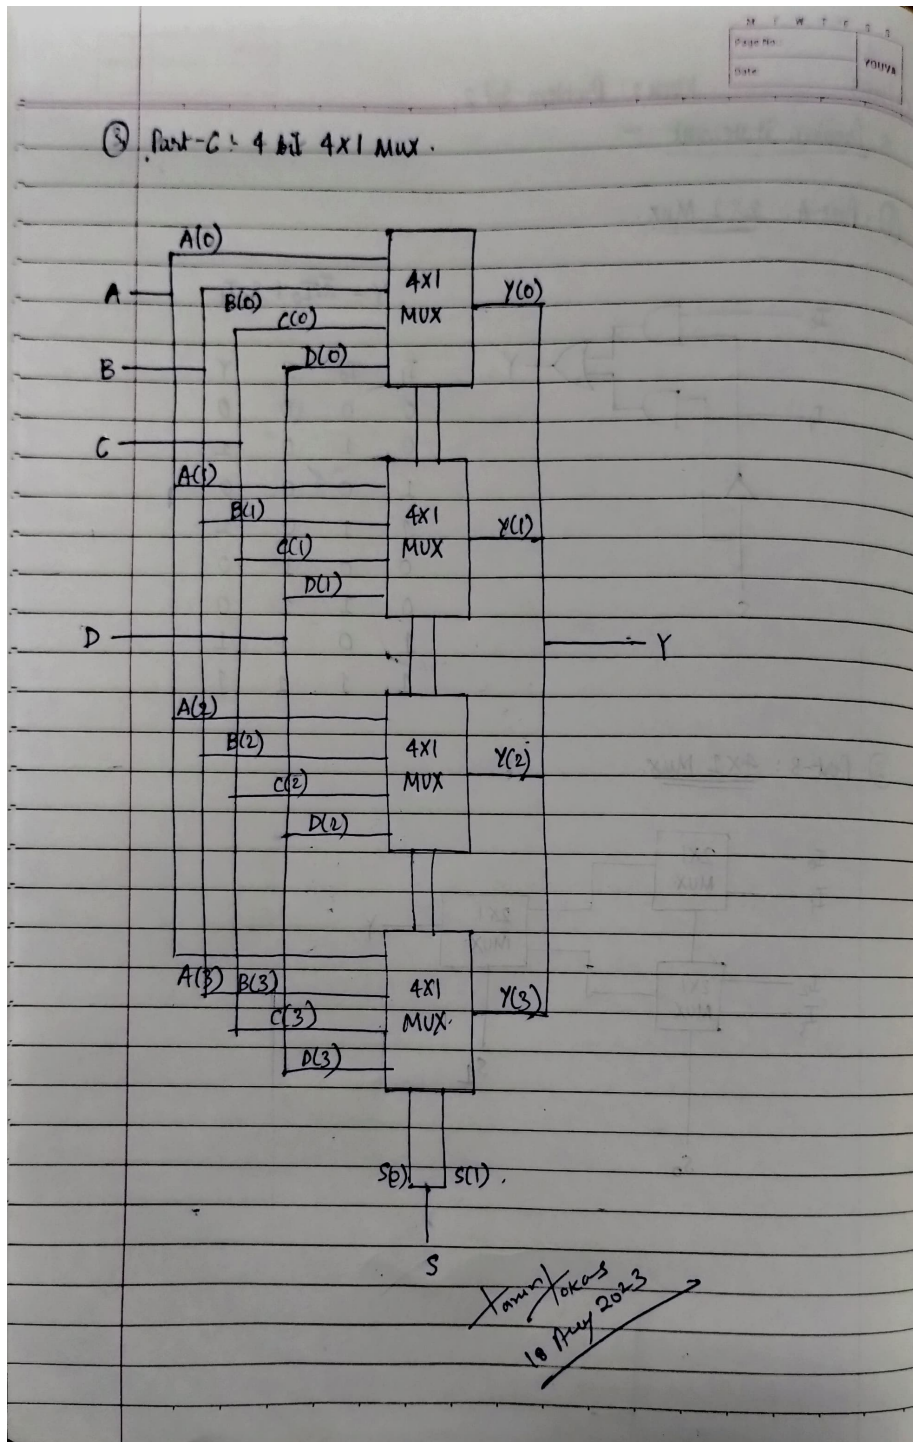 M T W T F S S
Page No.
Date
YOUVA
③ Part-C: 4 bit 4X1 MUX.
A(0)
A
B(0)
C(0)
B
D(0)
4X1
MUX
Y(0)
C
A(1)
B(1)
C(1)
D(1)
4X1
MUX
Y(1)
D
Y
A(2)
B(2)
C(2)
D(2)
4X1
MUX
Y(2)
A(3) B(3)
C(3)
D(3)
4X1
MUX.
Y(3)
S(0) S(1).
S
Tarun Tokas
18 Aug 2023